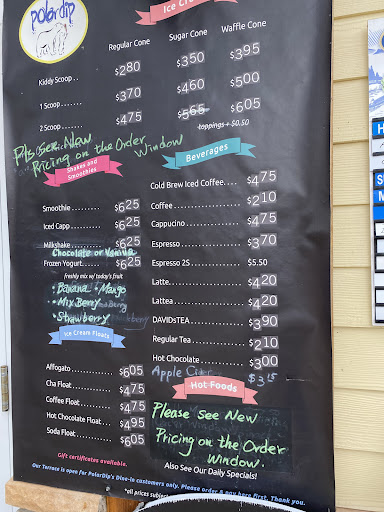 polardip
Ice Cream
Regular Cone Sugar Cone Waffle Cone
Kiddy Scoop . . $2.80 $3.50 $3.95
1 Scoop . . . . $3.70 $4.60 $5.00
2 Scoop . . . . $4.75 $5.65 $6.05
toppings + $0.50
Pls see New
Pricing on the Order
Window
Shakes and
Smoothies
Smoothie . . . . . . . . $6.25
Iced Capp . . . . . . . $6.25
Milkshake . . . . . . . $6.25
Chocolate or Vanilla
Frozen Yogurt . . . . . $6.25
freshly mix w/ today's fruit
• Banana • Mango
• Mix Berry
• Strawberry
Ice Cream Floats
Affogato . . . . . . . . $6.05
Cha Float . . . . . . . $4.75
Coffee Float . . . . . $4.75
Hot Chocolate Float . . . $4.95
Soda Float . . . . . . . $6.05
Gift certificates available.
Beverages
Cold Brew Iced Coffee . . . . $4.75
Coffee . . . . . . . . $2.10
Cappucino . . . . . . . $4.75
Espresso . . . . . . . $3.70
Espresso 2S . . . . . . $5.50
Latte . . . . . . . . . $4.20
Lattea . . . . . . . . $4.20
DAVIDsTEA . . . . . . . $3.90
Regular Tea . . . . . . $2.10
Hot Chocolate . . . . . $3.00
Apple $3.15
Hot Foods
Please See New
Pricing on the Order
Window.
Also See Our Daily Specials!
Our Terrace is open for PolarDip's Dine-In customers only. Please order & pay here first. Thank you.
*all prices subject